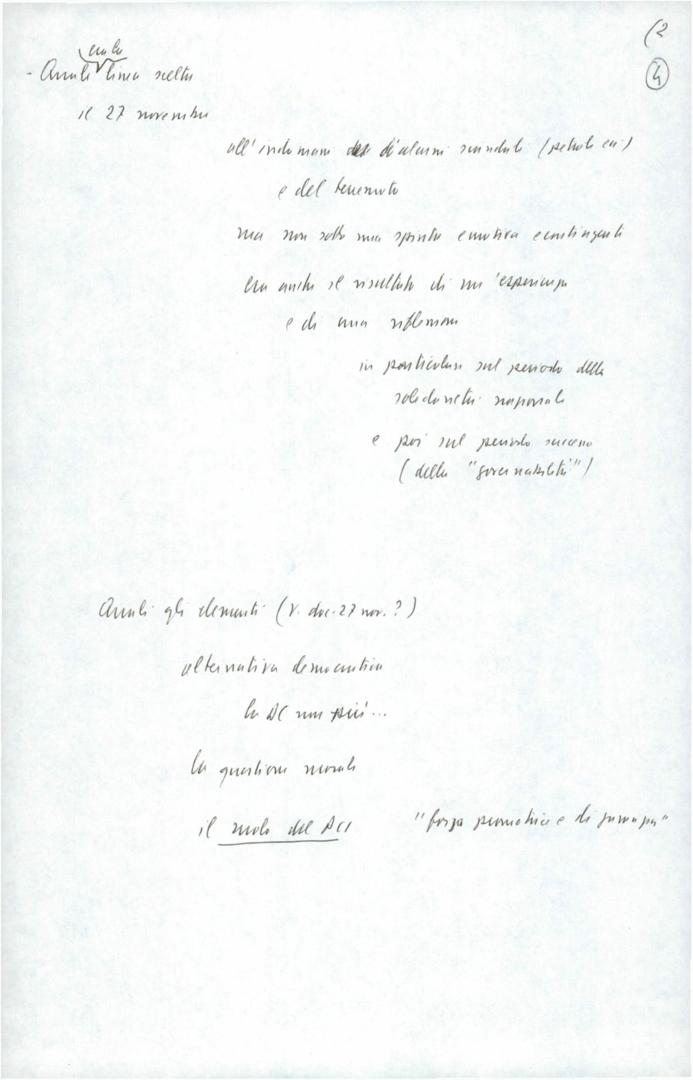 (2
4
era la
- Quale linea scelta
il 27 novembre
all'indomani di alcuni scandali (petroli ecc.)
e del terremoto
ma non sotto una spinta emotiva e contingente
era anche il risultato di un'esperienza
e di una riflessione
in particolare sul periodo della
solidarietà nazionale
e poi sul periodo successo
(della "governabilità")
Quali gli elementi (v. doc. 27 nov.?)
alternativa democratica
la DC non più...
la questione morale
il ruolo del PCI "forza promotrice e di garanzia"